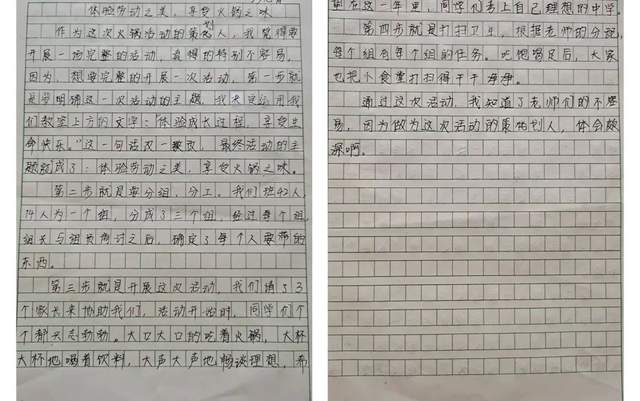 体验劳动之美，享受火锅之味
作为这次火锅活动的策划人，我觉得要
开展一场完整的活动，真得的特别不容易，
因为，想要完整的开展一次活动，第一步就
是要明确这一次活动的主题，我决定运用我
们教室上方的文字：“体验成长过程，享受生
命快乐。”这一句话改一改，最终活动的主
题就成了：体验劳动之美，享受火锅之味。
第二步就是要分组，分工。我们班42人，
14人为一个组，分成了三个组，经过每个组，
组长与组员商讨之后，确定了每个人要带的
东西。
第三步就是开展这次活动，我们请了3
个家长来协助我们，活动开始时，同学们个
个都兴志勃勃。大口大口的吃着火锅，大杯
大杯地喝着饮料，大声大声地畅谈理想，希
望在这一年里，同学们考上自己理想的中学。
第四步就是打扫卫生，根据老师的分配，
每个组有每个组的任务。吃饱喝足后，大家
也把小食堂打扫得干干净净。
通过这次活动，我知道了老师们的不容
易，因为做为这次活动的策划人，体会颇
深啊。